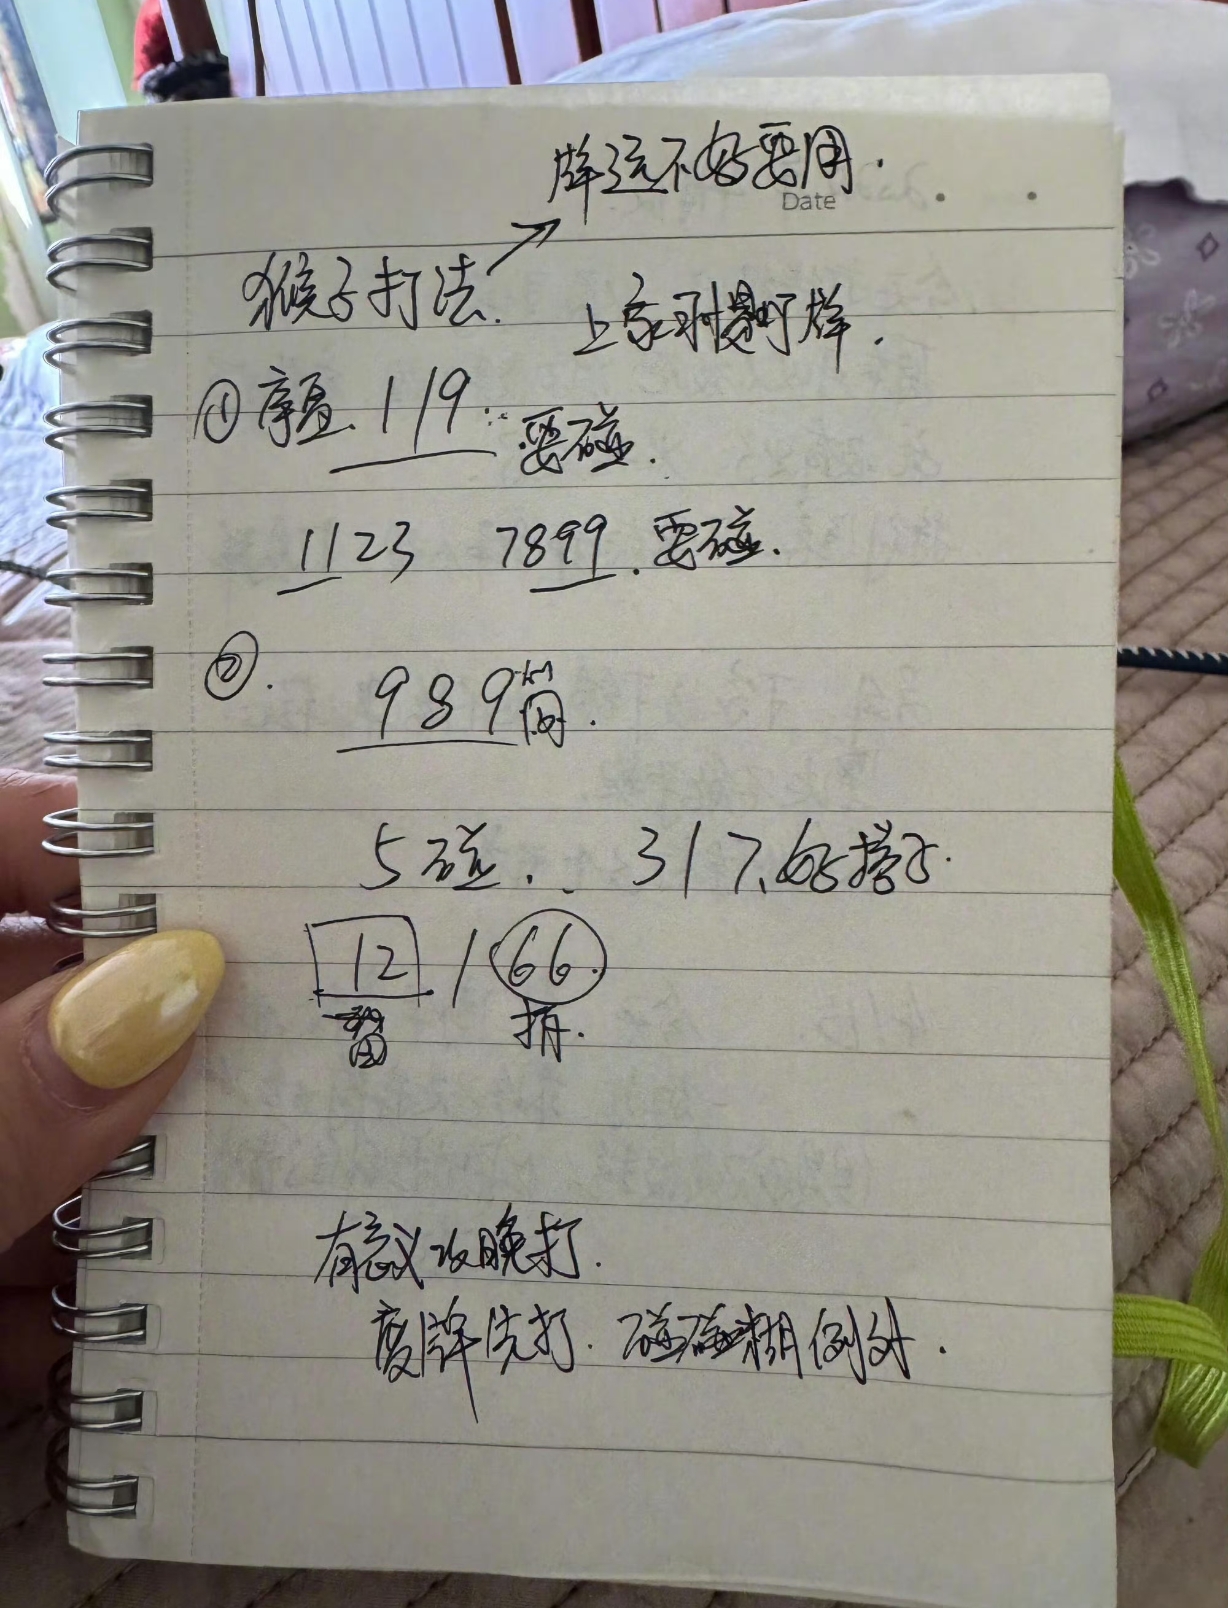 牌运不好要用.
Date
猴子打法.
上家不喂牌.
① 序盘、119: 要碰.
1123 7899. 要碰.
②.
989筒.
5碰. 317、好搭子.
12 / 66.
留 拆.
有 攻 晚打.
废牌先打. 碰碰糊例外.